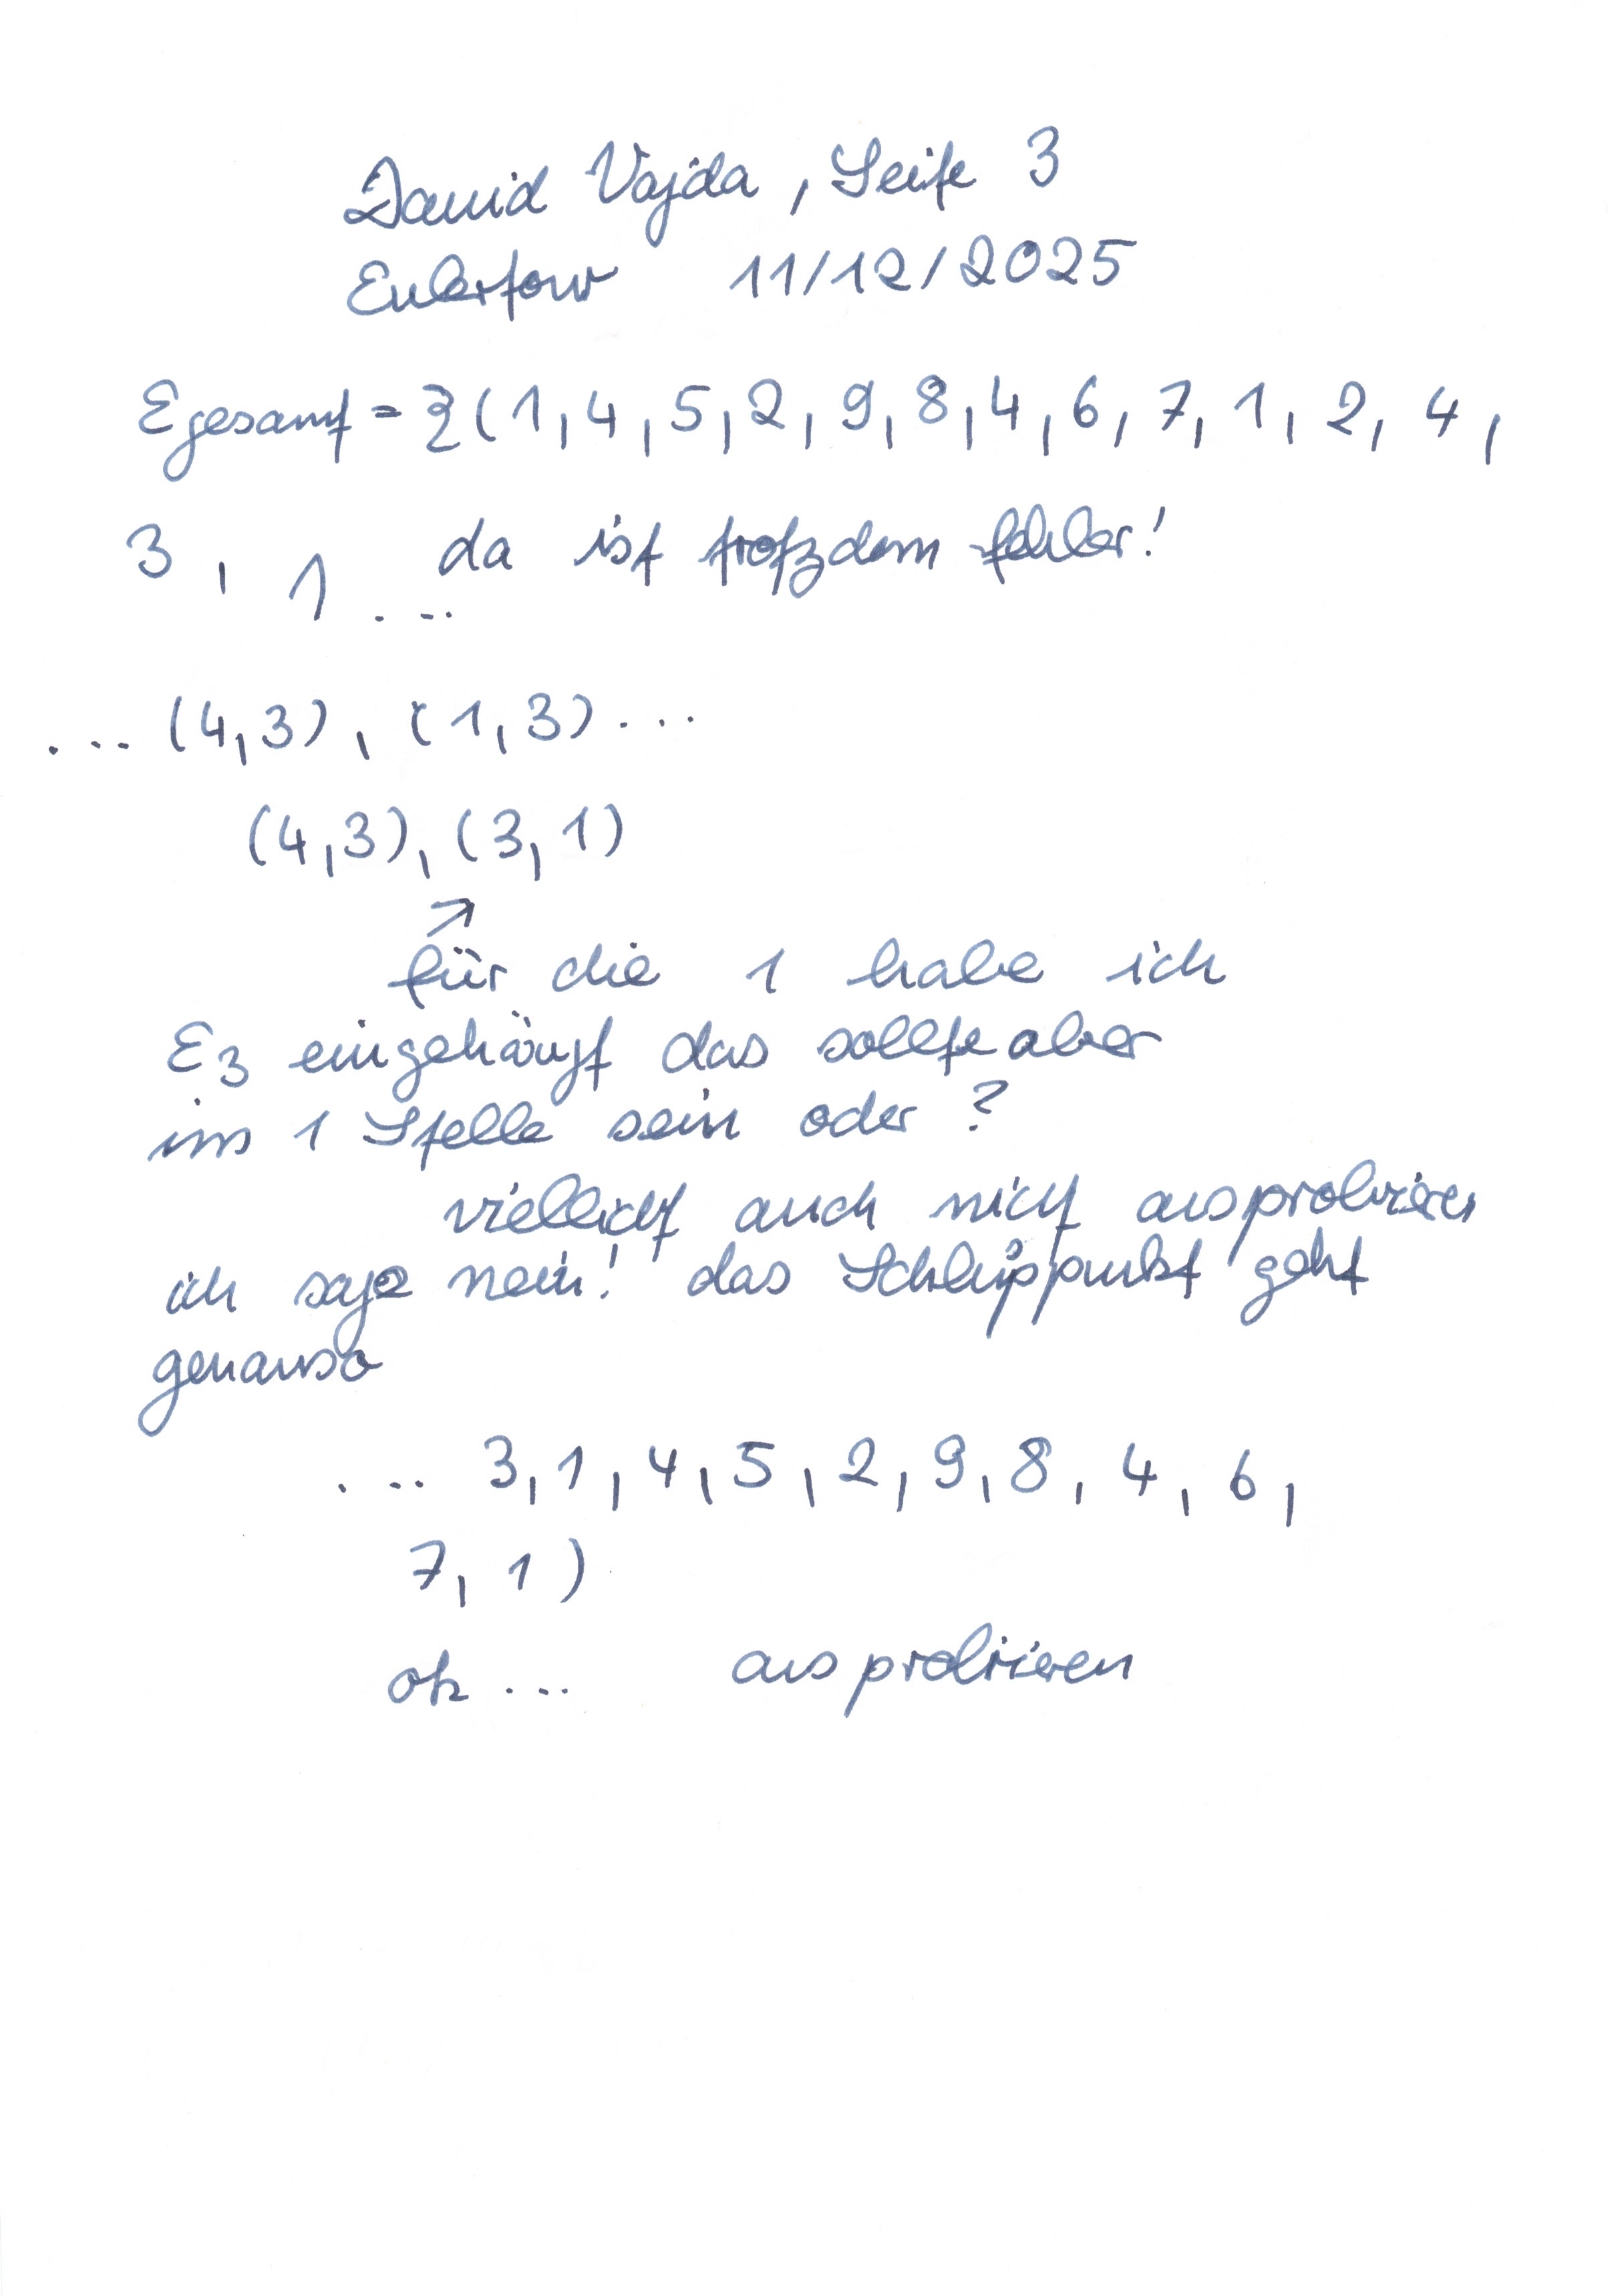 David Vajda, Seite 3
Eulertour 11/12/2025
Egesamt = {(1,4,5,2,9,8,4,6,7,1,2,4,
3, 1 ... da ist trotzdem fehler!
... (4,3), (1,3) ...
(4,3), (3,1)
↗
für die 1 habe ich
E3 eingehängt das sollte aber
im 1 Stelle sein oder?
vielleicht auch nicht ausprobieren
ich sage nein! das Schlüppunkt geht
genauso
... 3,1,4,5,2,9,8,4,6,
7,1)
ok ... ausprobieren